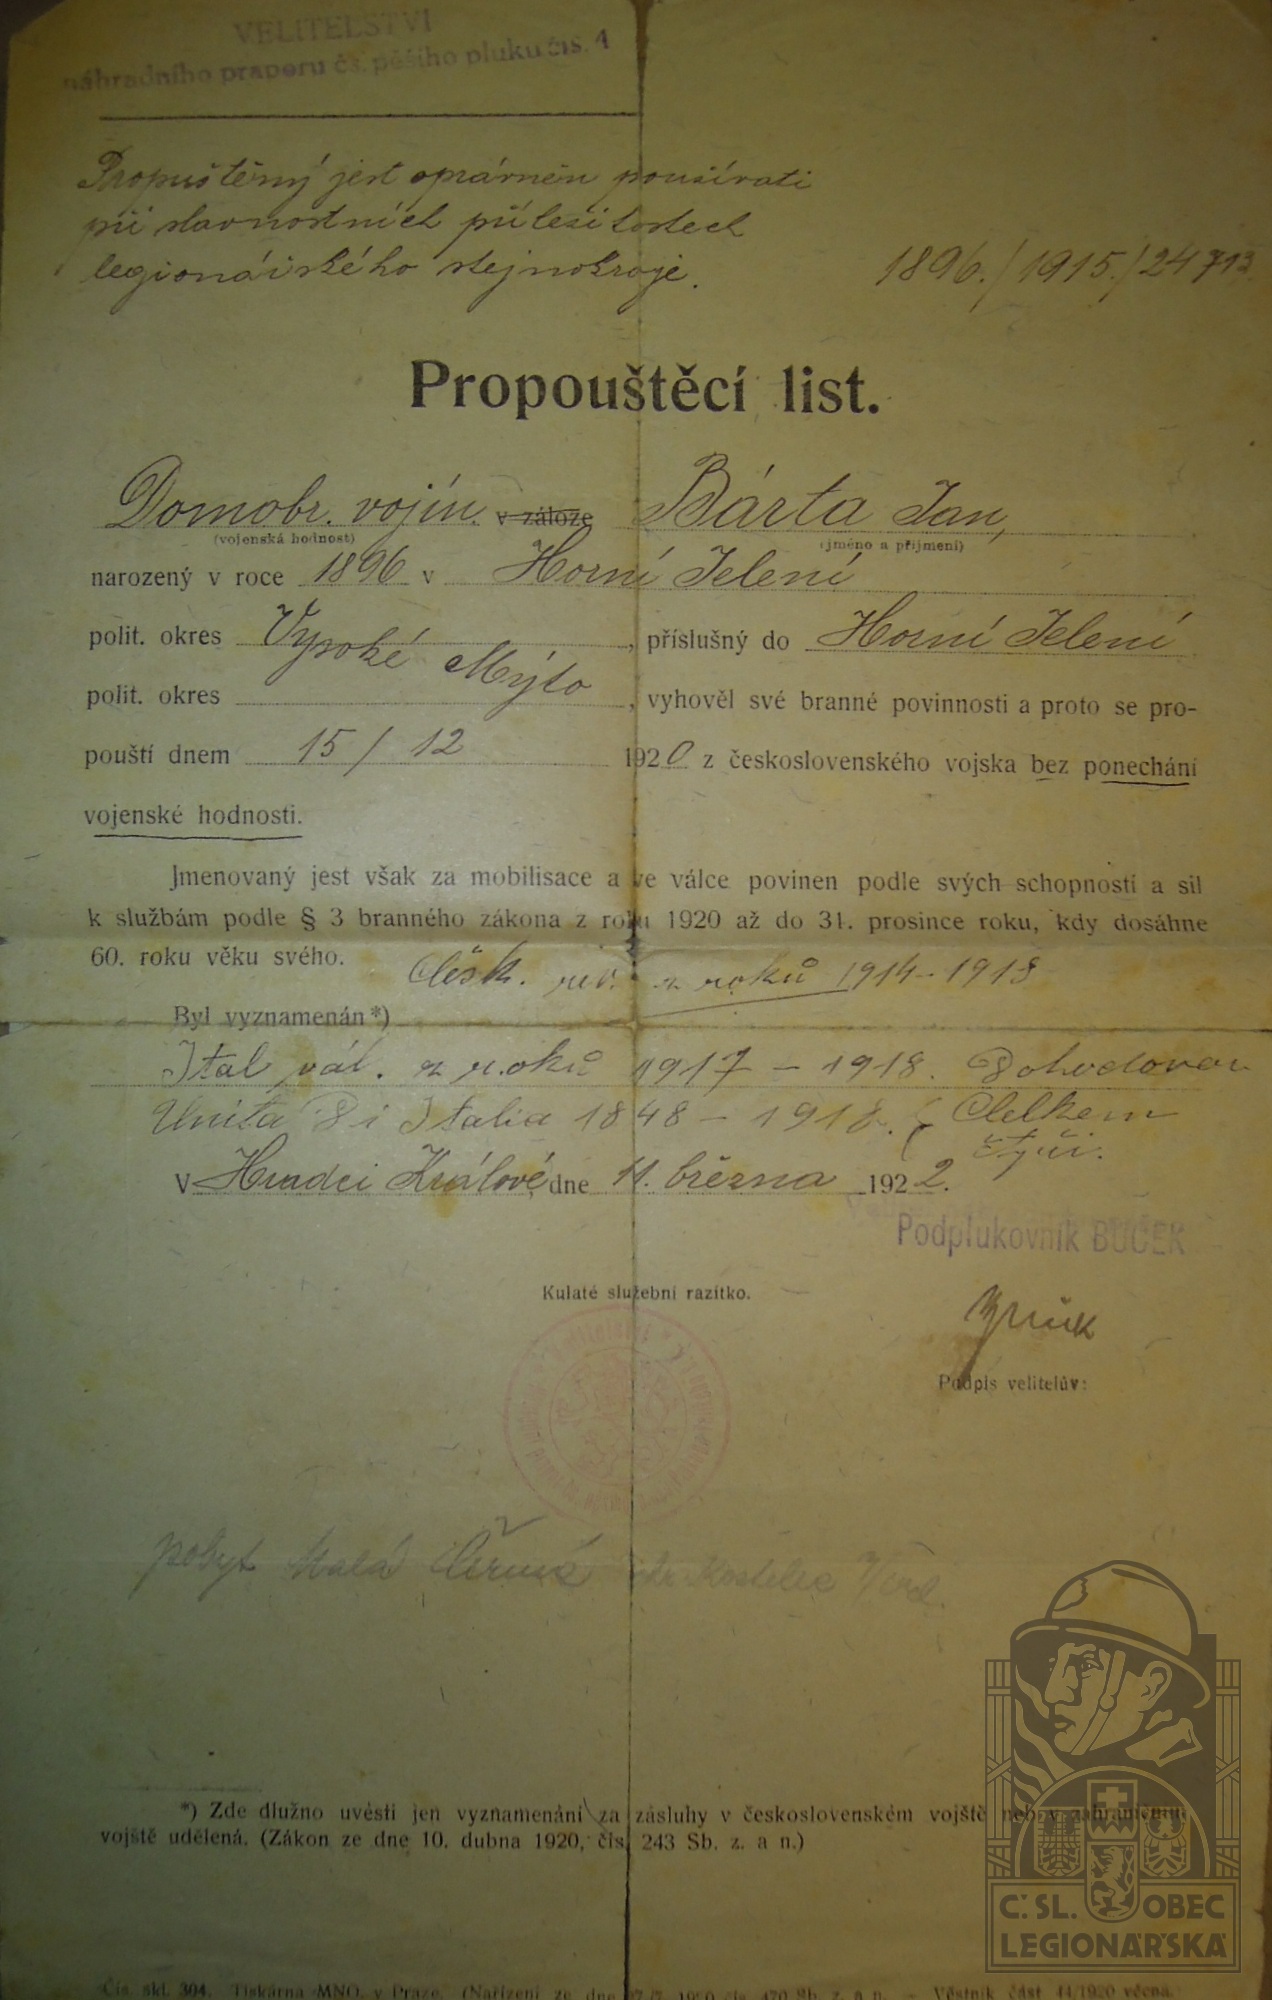 VELITELSTVÍ
náhradního praporu čs. pěšího pluku čís. 4
Propuštěný jest oprávněn používati
při slavnostních příležitostech
legionářského stejnokroje.
1896./1915./24713
Propouštěcí list.
Domobr. vojín. v záloze Bárta Jan,
(vojenská hodnost) (jméno a příjmení)
narozený v roce 1896 v Horní Jelení
polit. okres Vysoké Mýto, příslušný do Horní Jelení
polit. okres , vyhověl své branné povinnosti a proto se pro-
pouští dnem 15/12 1920 z československého vojska bez ponechání
vojenské hodnosti.
Jmenovaný jest však za mobilisace a ve válce povinen podle svých schopností a sil
k službám podle § 3 branného zákona z roku 1920 až do 31. prosince roku, kdy dosáhne
60. roku věku svého.
Česk. rev. z roků 1914-1918
Byl vyznamenán*)
Ital vál. z roků 1917-1918.
Unita Italia 1848-1918. Celkem
čtyři.
V Hradci Králové dne 11. března 1922.
Podplukovník BUČEK
Kulaté služební razítko.
Podpis velitelův:
pobyt Malá Čermá Kostelec
*) Zde dlužno uvésti jen vyznamenání za zásluhy v československém vojště neb v zahraničním
vojště udělená. (Zákon ze dne 10. dubna 1920, čís. 243 Sb. z. a n.)
Č. SL. OBEC
LEGIONÁŘSKÁ
Čís. skl. 304. Tiskárna MNO. v Praze. (Nařízení ze dne 1920 čís. 470 Sb. z. a n. - Věstník část 44/1920 věcná.